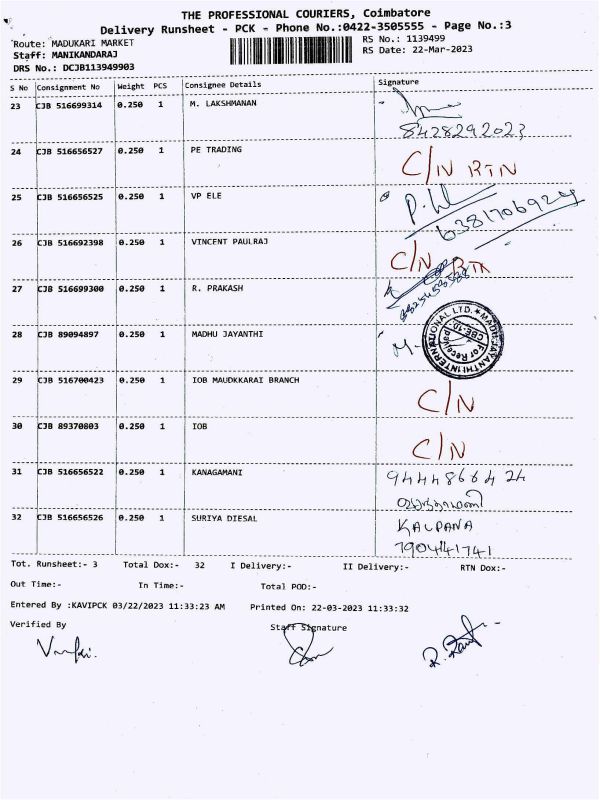 THE PROFESSIONAL COURIERS, Coimbatore
Delivery Runsheet - PCK - Phone No.:0422-3505555 - Page No.:3
Route: MADUKARI MARKET RS No.: 1139499
Staff: MANIKANDARAJ RS Date: 22-Mar-2023
DRS No.: DCJB113949903
S No Consignment No Weight PCS Consignee Details Signature
23 CJB 516699314 0.250 1 M. LAKSHMANAN
8428292023
24 CJB 516656527 0.250 1 PE TRADING C/N RTN
25 CJB 516656525 0.250 1 VP ELE
6381706924
26 CJB 516692398 0.250 1 VINCENT PAULRAJ C/N RTN
27 CJB 516699300 0.250 1 R. PRAKASH
28 CJB 89094897 0.250 1 MADHU JAYANTHI MADHU JAYANTHI INTERNATIONAL LTD. For Received CBE-10
29 CJB 516700423 0.250 1 IOB MAUDKKARAI BRANCH C/N
30 CJB 89370803 0.250 1 IOB C/N
31 CJB 516656522 0.250 1 KANAGAMANI 9444866424
32 CJB 516656526 0.250 1 SURIYA DIESAL KALPANA
7904441741
Tot. Runsheet:- 3 Total Dox:- 32 I Delivery:- II Delivery:- RTN Dox:-
Out Time:- In Time:- Total POD:-
Entered By :KAVIPCK 03/22/2023 11:33:23 AM Printed On: 22-03-2023 11:33:32
Verified By Staff Signature